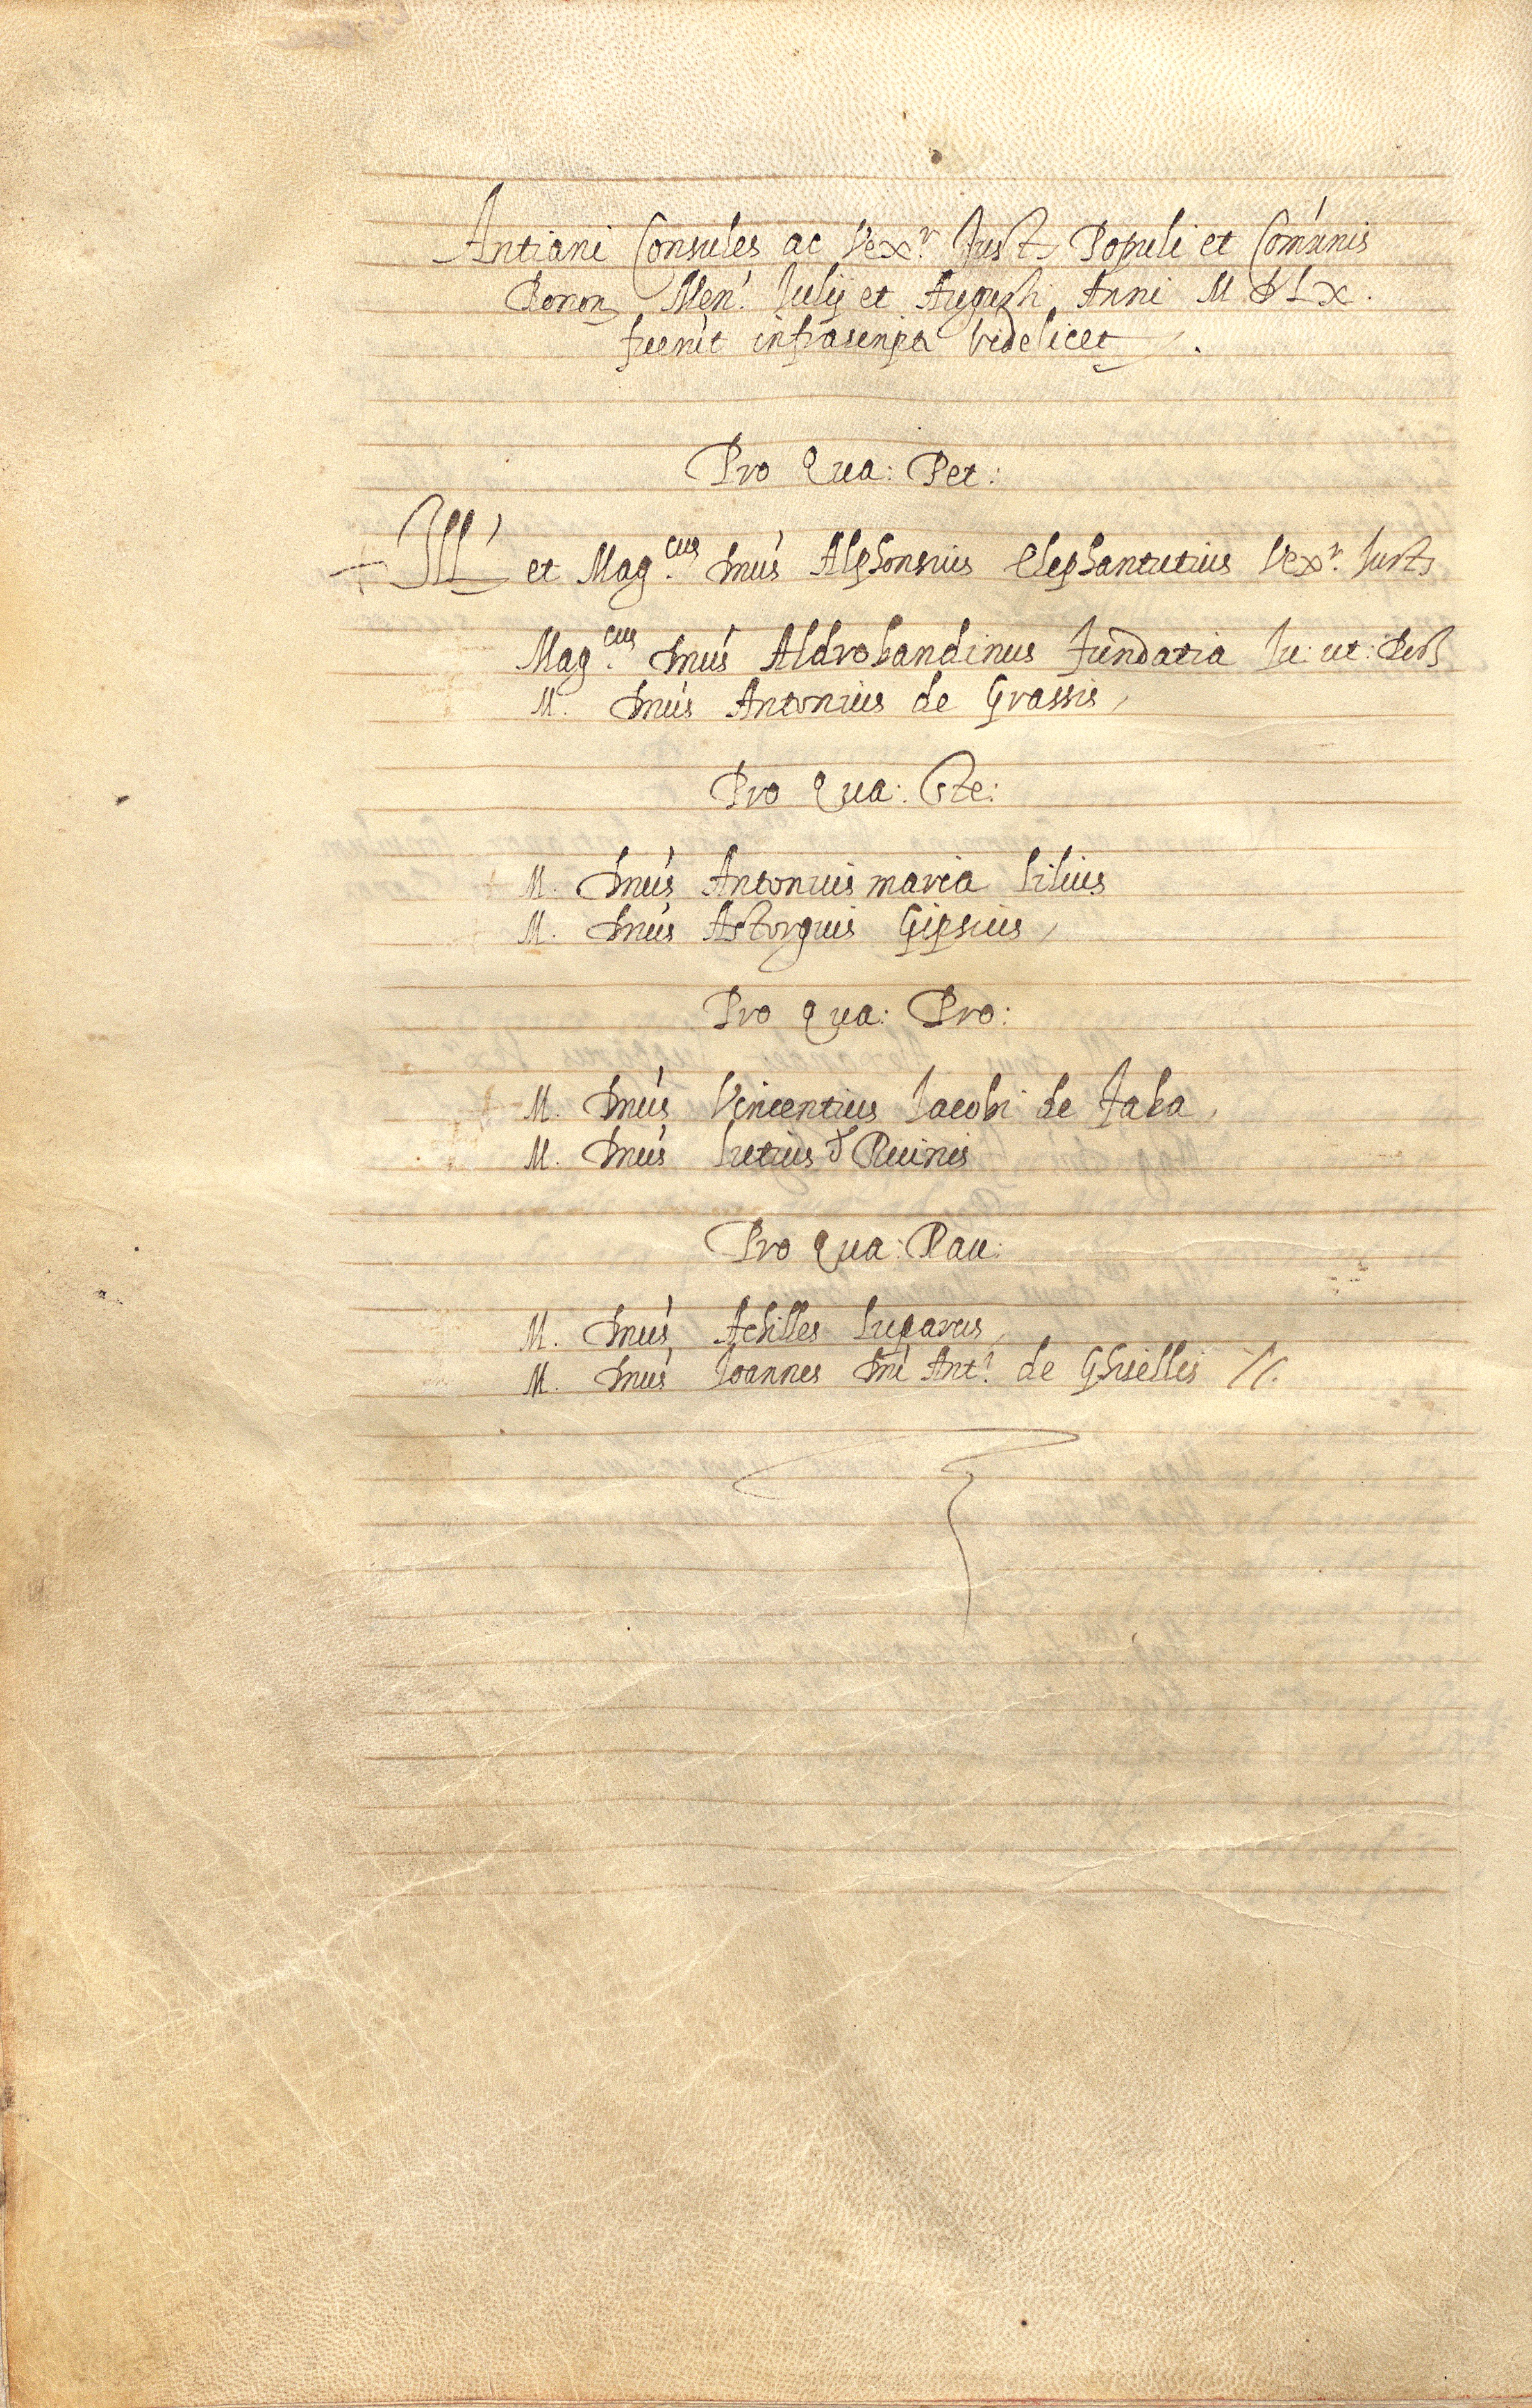 Antiani Consules ac Vexr. Just. Populi et Comúnis
Bonon. Men. Julij et Augusti Anni M D L X.
fuerút infrascripti videlicet
Pro Qua: Pet:
Ill. et Mag.cus Dnús Alphonsus Elephantutius Vexr. Just.
Mag.cus Dnús Aldrobandinus Fundatia Ju: ut: Doct.
M. Dnús Antonius de Grassis,
Pro Qua: Ste:
M. Dnús Antonius maria Lilius
M. Dnús Astorguis Gipsius,
Pro Qua: Pro:
M. Dnús Vincentius Jacobi de Faba,
M. Dnús Lutius d Ruinis
Pro Qua: Rau:
M. Dnús Achilles Luparus,
M. Dnús Joannes Dní Ant. de Ghisellis //.